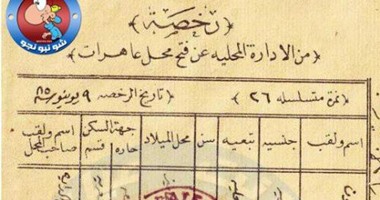 رخصة
من الادارة المحليه عن فتح محل عاهرات
نمرة متسلسله ٢٦ تاريخ الرخصه ٩ يونيو ٨٥
اسم ولقب جنسيه تبعيه سن محل الميلاد جهة السكن اسم ولقب
حاره قسم صاحب المحل
شو نيو نجو